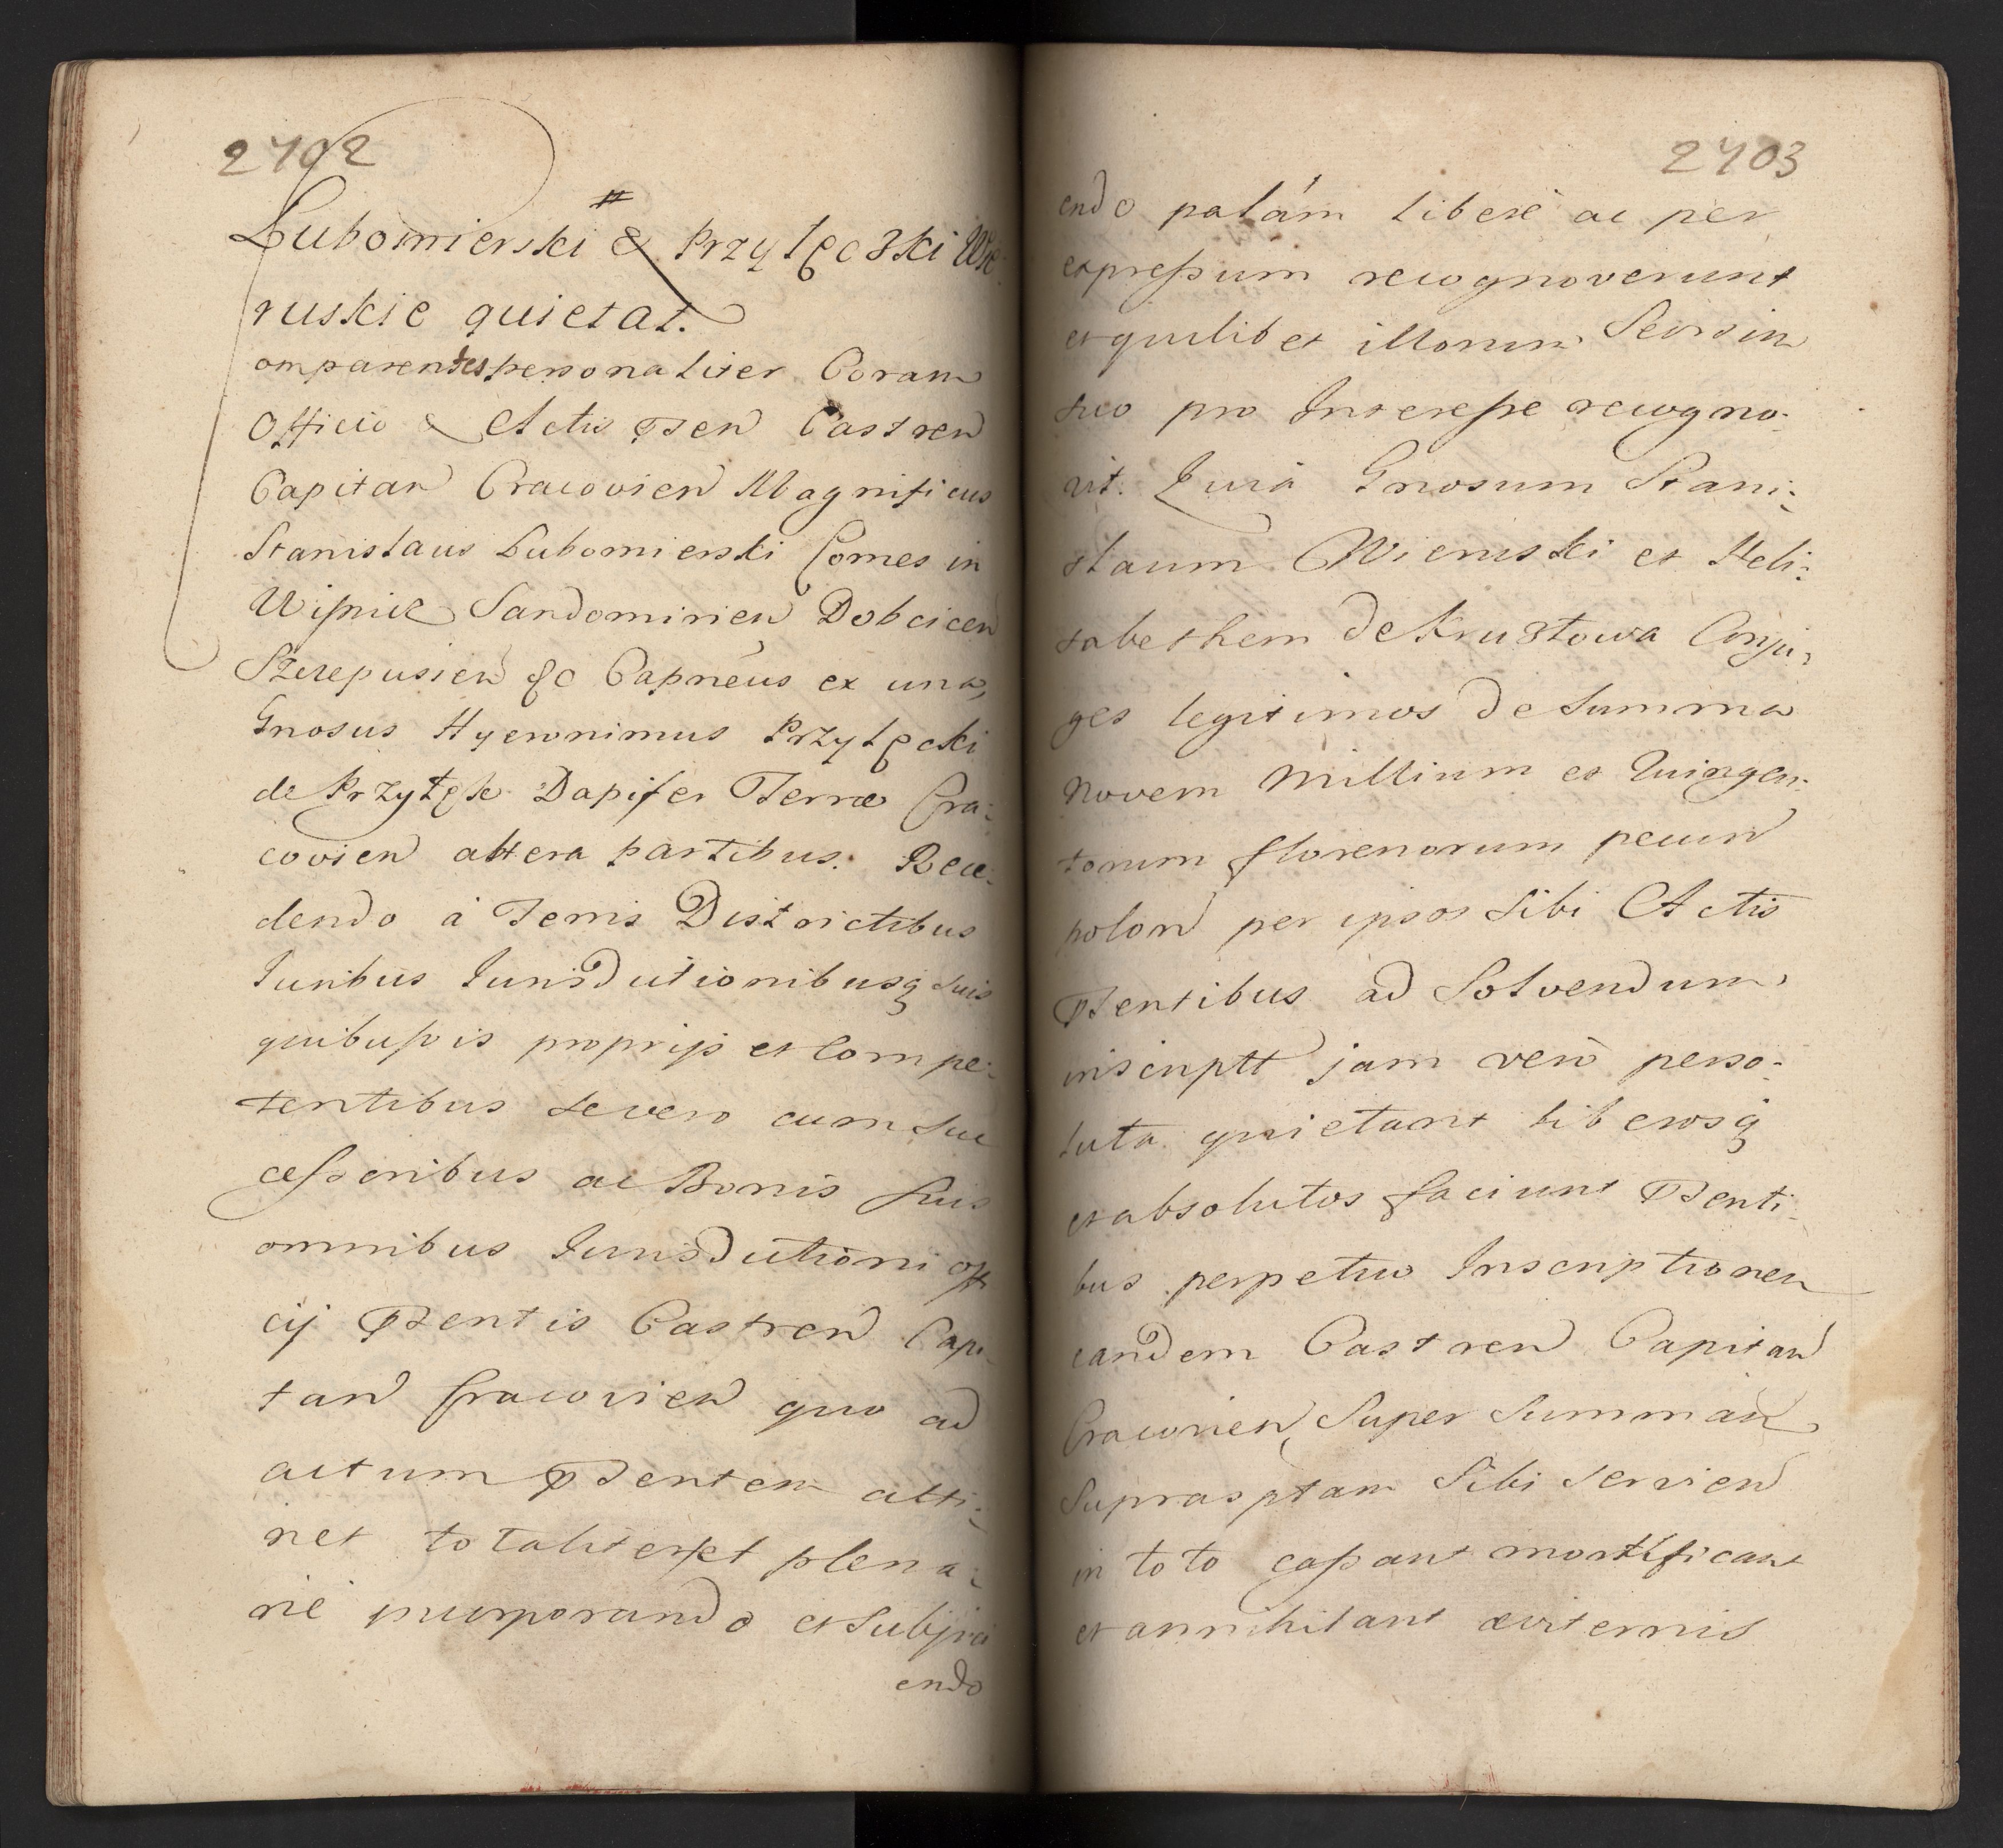 2702
Lubomierski & Przyłęcski Wie
ruskie quietat.
omparentes personaliter Coram
Officio & Actis Pten Castren
Capitan Cracovien Magnificus
Stanislaus Lubomierski Comes in
Wiſnicz Sandomirien Dobcicen
Szcepusien &c Capneus ex una,
Gnosus Hyeronimus Przyłęcki
de Przyłęk Dapifer Terræ Cra:
covien altera partibus. Rece:
dendo à Terris Districtibus
Iuribus Iurisdictionibusq suis
quibusvis proprijs et Compe:
tentibus se vero cum suc
ceſsoribus ac Bonis suis
omnibus Iurisdictioni offi
cij Ptentis Castren Capi
tan Cracovien quo ad
actum Ptentem atti:
net totaliter et plena:
rie incorporando et Subjici
endo
2703
endo palám liberè ac per
expreſsum recognoverunt
et quilibet illorum Seorsim
suo pro Intereſse recogno:
vit. Quia Gnosum Stani:
slaum Wieruski et Heli:
sabethem de Kruszłowa Conju:
ges legitimos de Summa
Novem Millium et Quingen:
torum florenorum pecun
polon per ipsos Sibi Actis
Ptentibus ad Solvendum
inscriptt jam verò perso:
luta quietant liberosq
et absolutos faciunt Ptenti:
bus perpetuo Inscriptionem
eandem Castren Capitan
Cracovien Super Summam
Suprasptam Sibi Servien
in toto caſsant mortificant
et annihilant æviternis